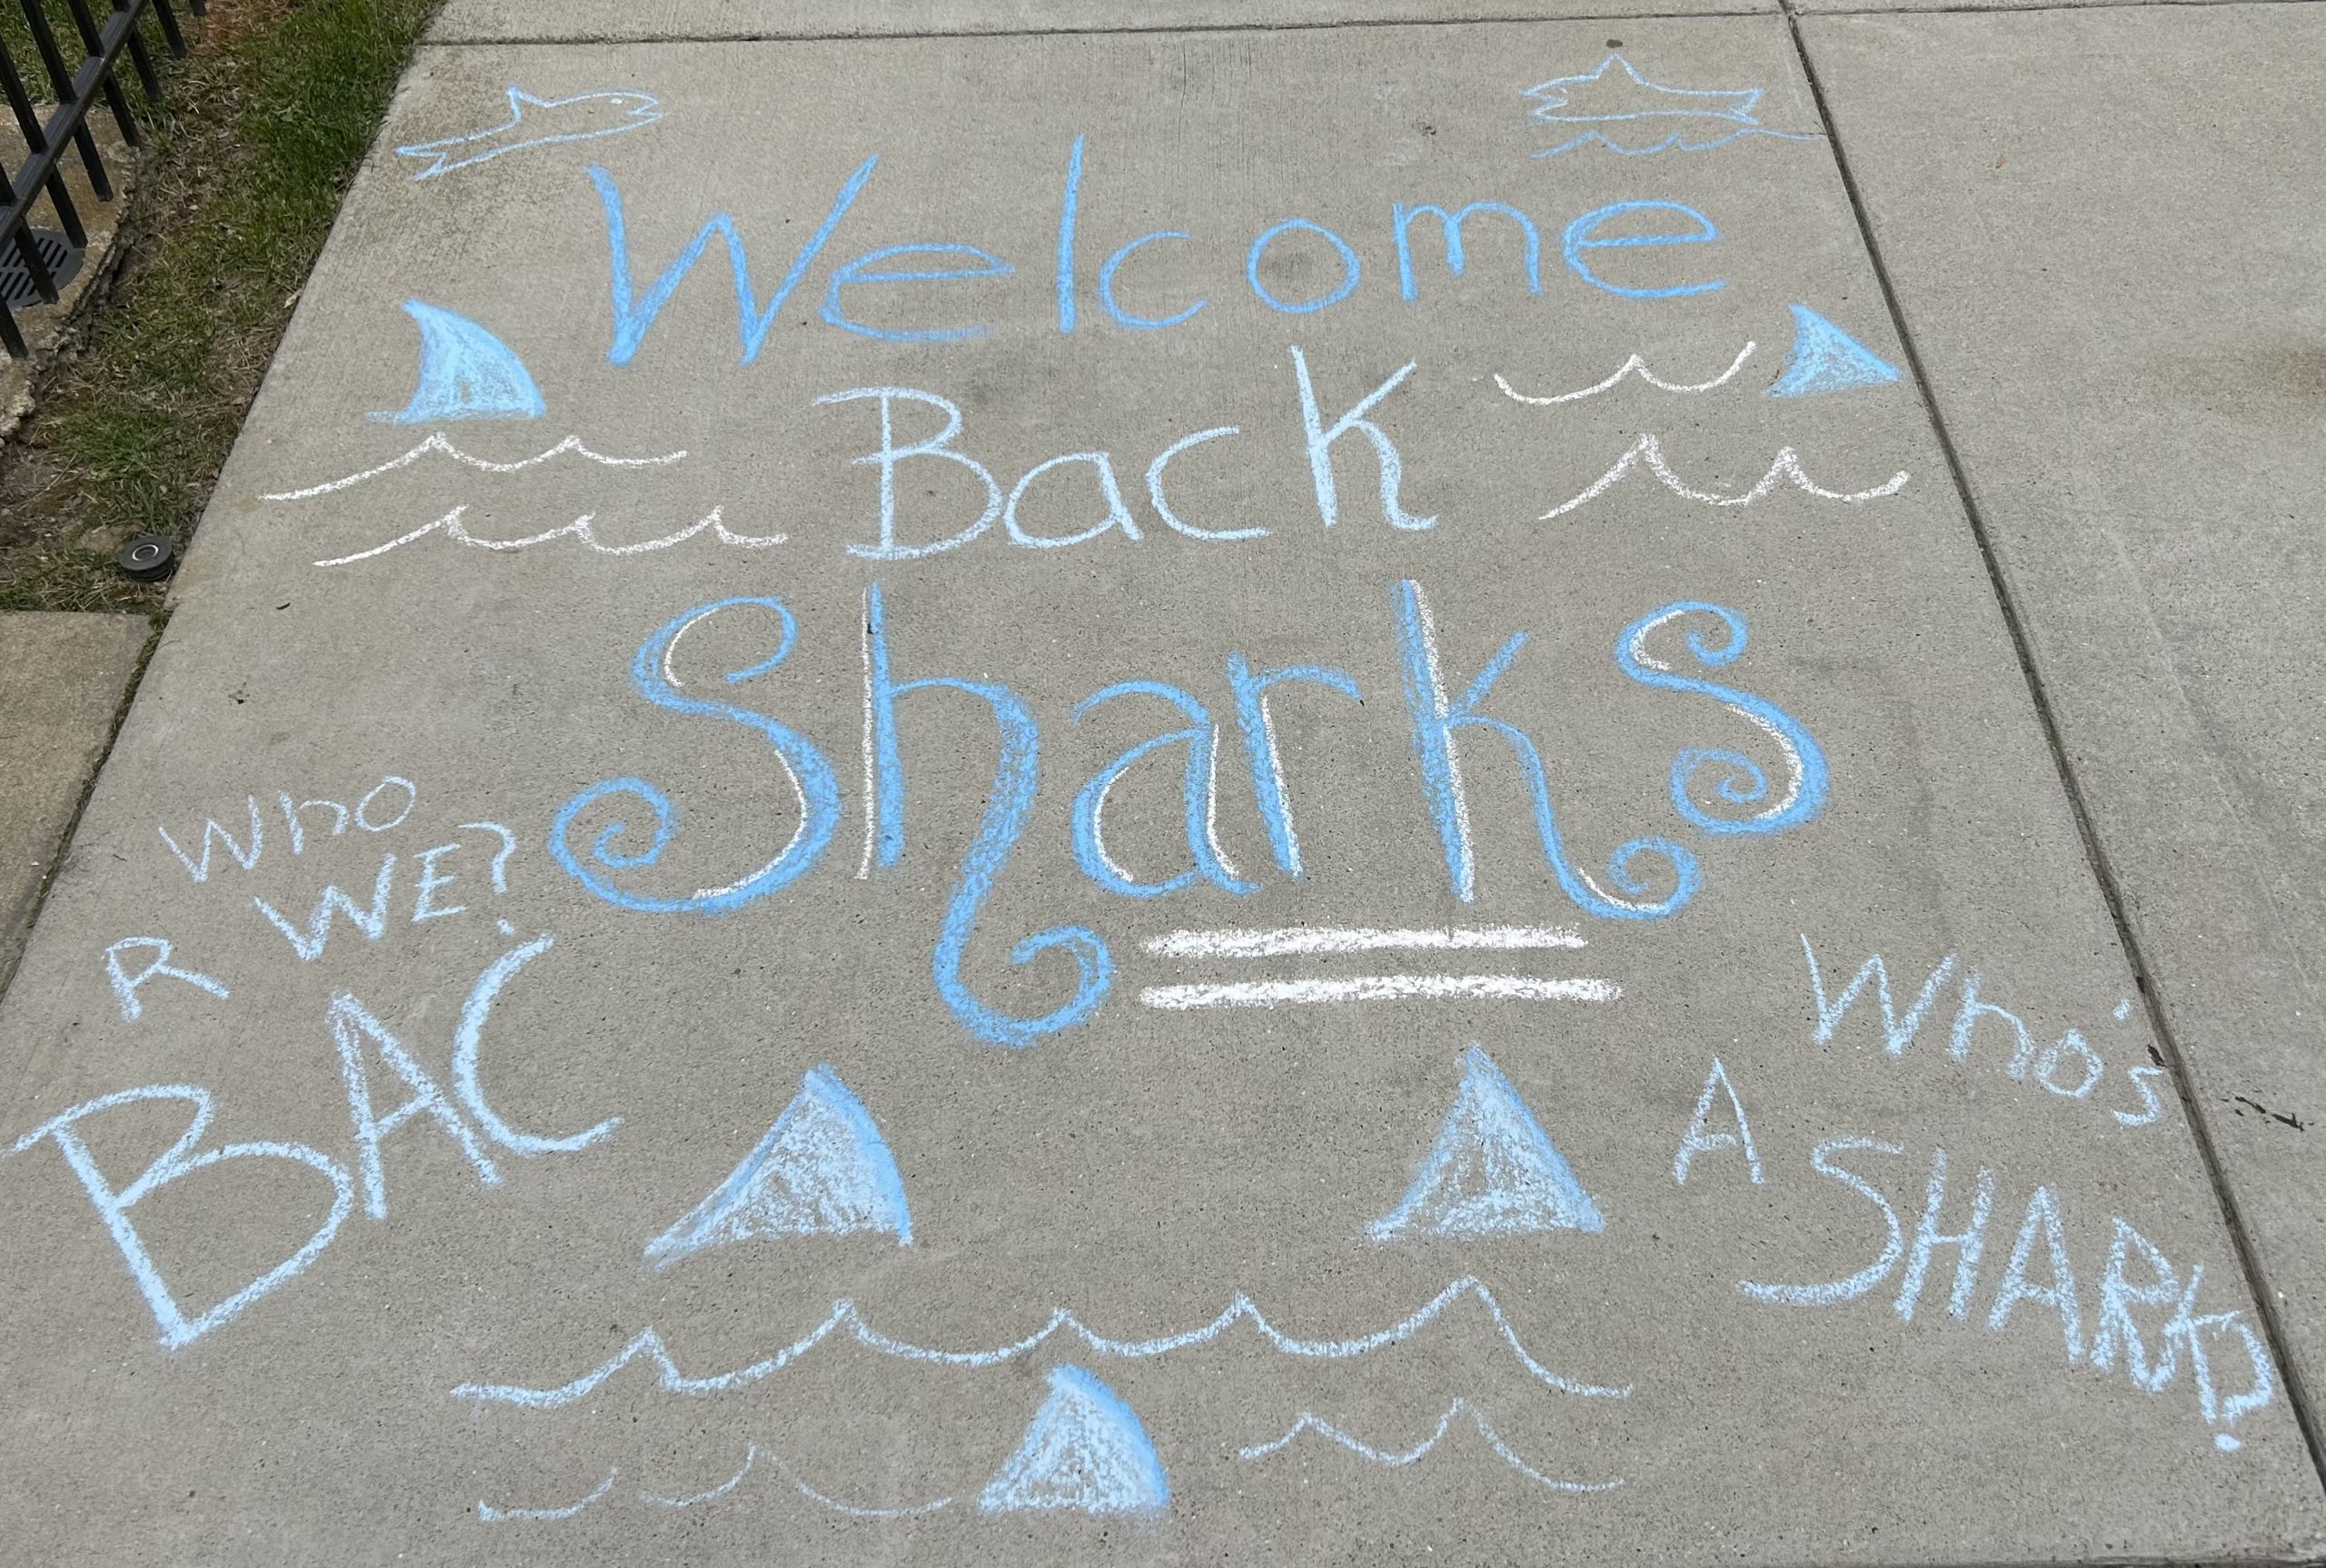 Welcome
Back
Sharks
Who
R WE?
BAC
Who's
A SHARK?